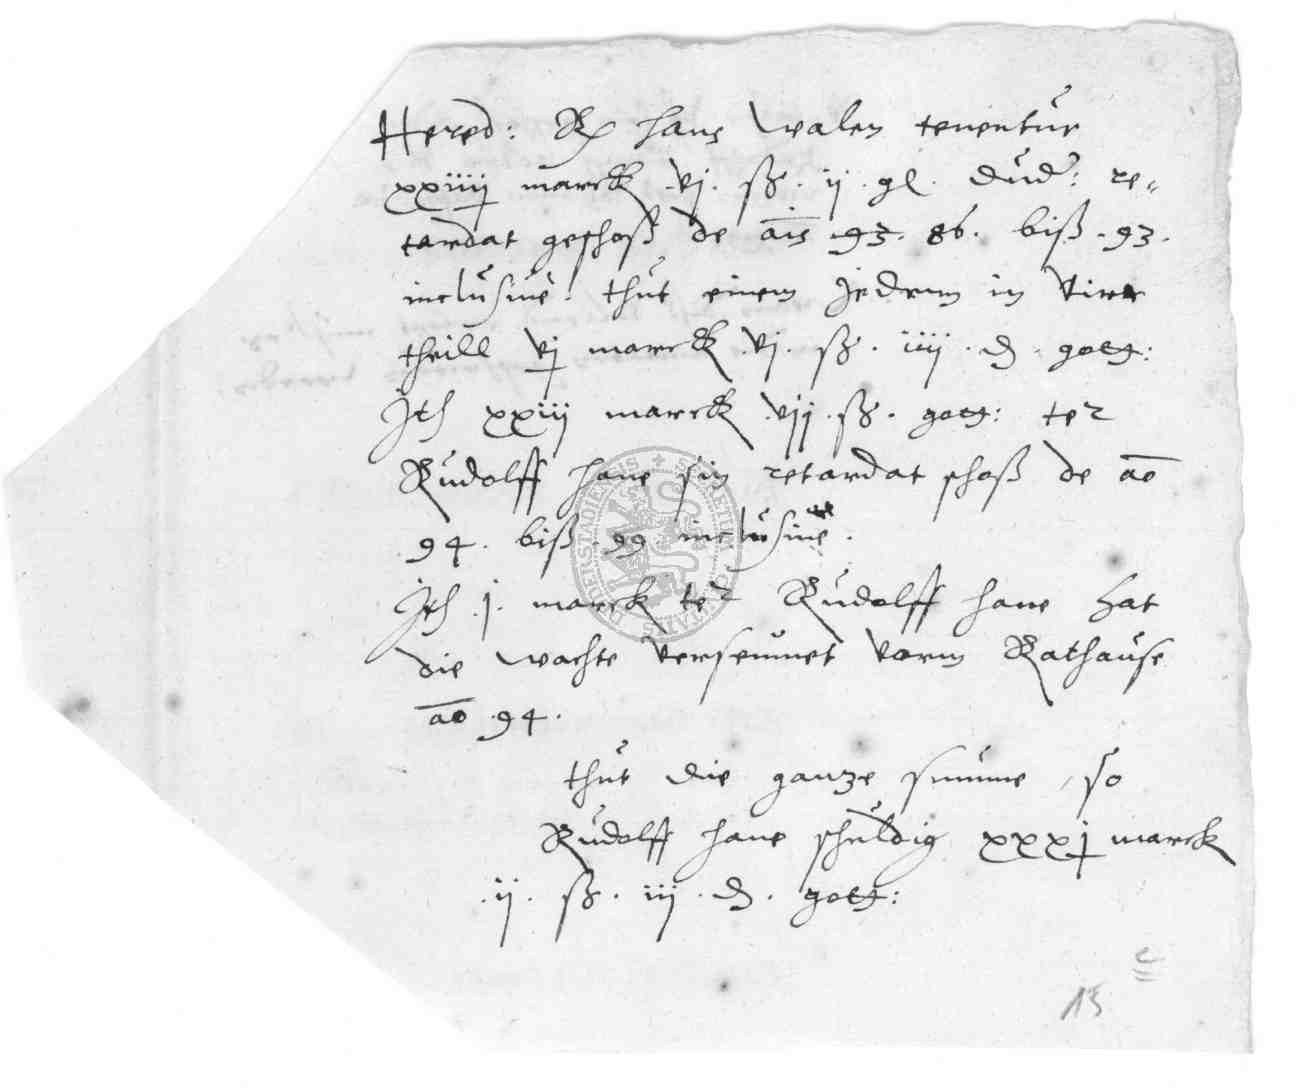 Hered: Hans Walen tenentur
xxiiij marck .vj. ß. ij. gl. Duder: re-
tardat geschoß de ais 93. 86. biß .93.
inclusiue. thut einem Jedem in vier
theill vj marck .vj. ß. iiij. d. gott:
Jth xxiij marck .vij. ß. gott: ter
Rudolff Hane sin retardat schoß de ao
.94. biß .99 inclusiue.
Jth .j. marck ter Rudolff Hane hat
die wachte verseumet vorm Rathause
ao .94.
thut die ganze summe, so
Rudolff Hane schuldig xxxj marck
.ij. ß. iij. d. gott:
15